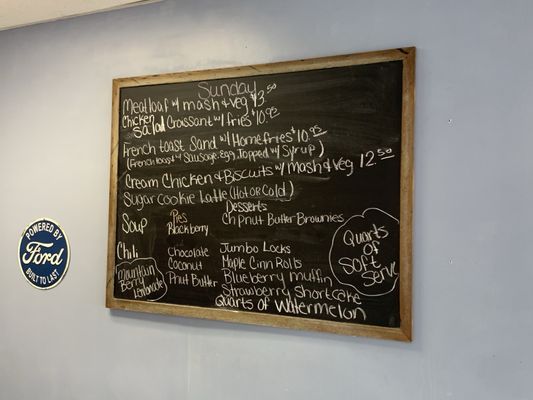 Sunday
Meatloaf w/ mash & veg $13.50
Chicken Salad Croissant w/ fries $10.95
French toast Sand w/ Homefries $10.95
(French toast w/ Sausage, Egg, Topped w/ Syrup)
Cream Chicken & Biscuits w/ mash & veg 12.50
Sugar cookie Latte (Hot or Cold)
Desserts
Soup Pies Ch Pnut Butter Brownies
Blackberry
Chili Chocolate Jumbo Locks
Coconut Maple Cinn Rolls
Pnut Butter Blueberry muffin
Strawberry Shortcake
Quarts of Watermelon
Mountain
Berry
Lemonade
Quarts
of
Soft
Serve
POWERED BY
Ford
BUILT TO LAST